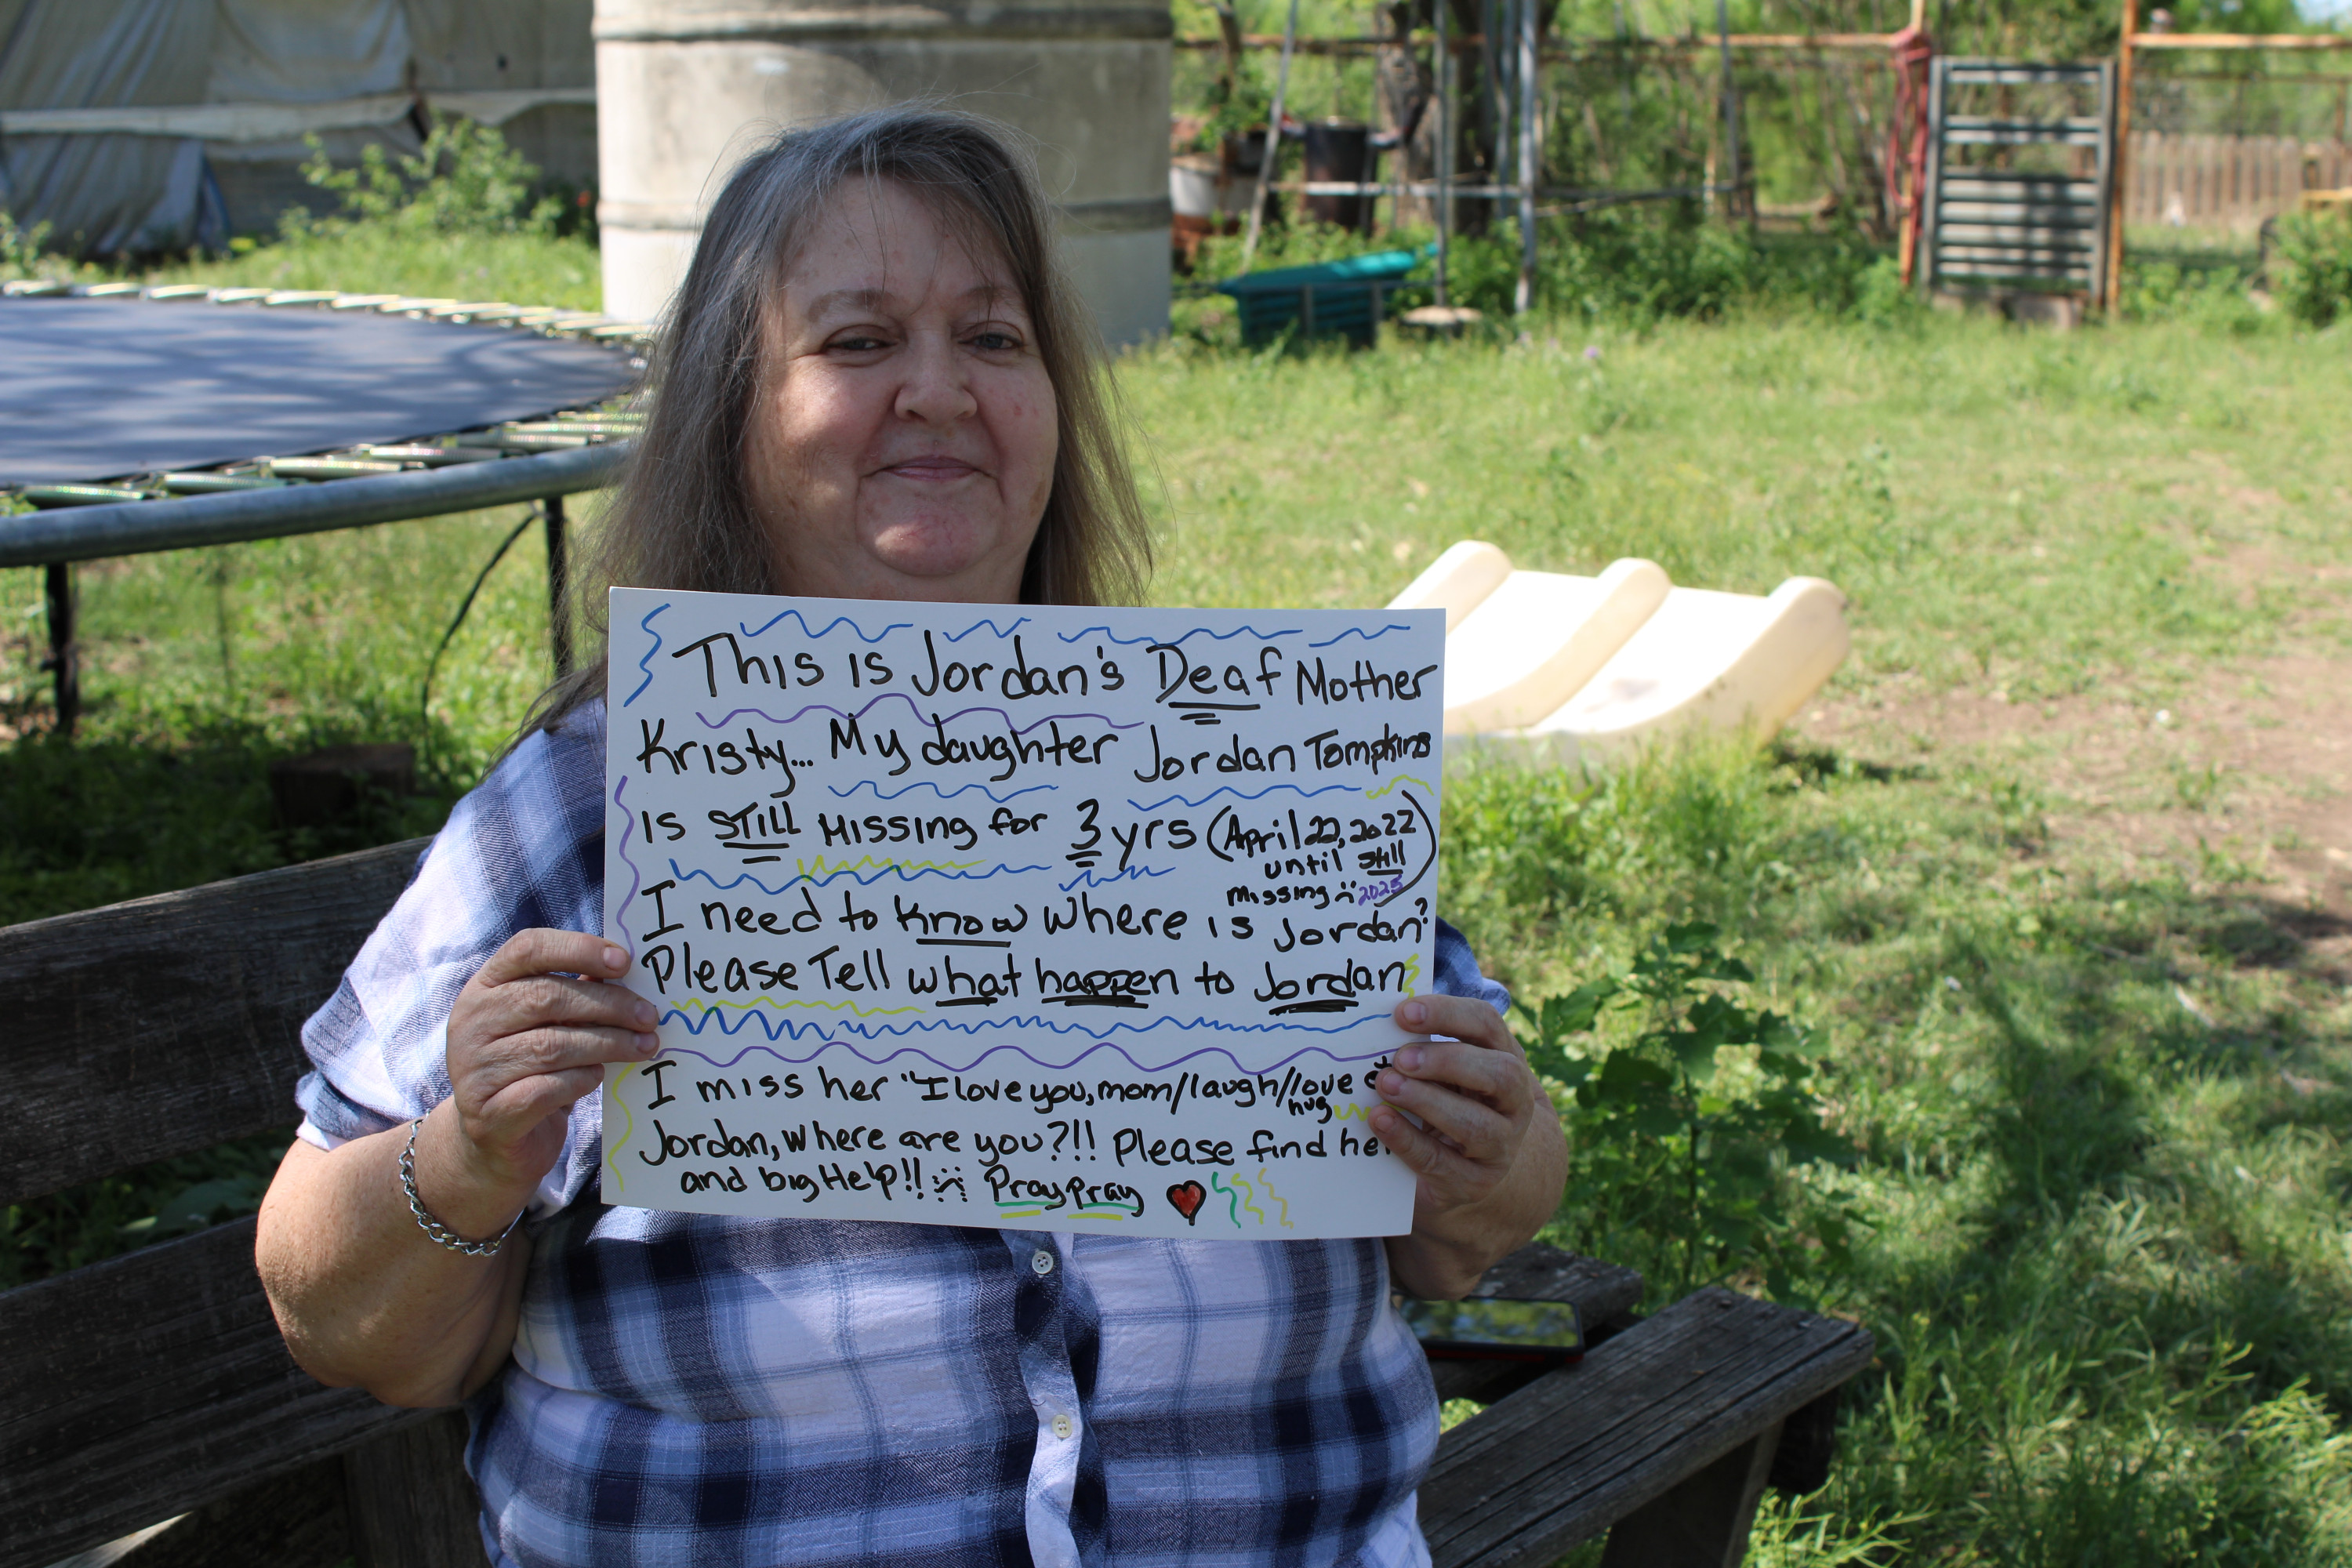 This is Jordan's Deaf Mother
Kristy... My daughter Jordan Tompkins
is STILL Missing for 3 yrs (April 22, 2022
until still
missing :( 2025)
I need to know where is Jordan?
Please Tell what happen to Jordan
I miss her "I love you, mom/laugh/love
hug
Jordan, where are you?!! Please find her
and big Help!! :( Pray Pray